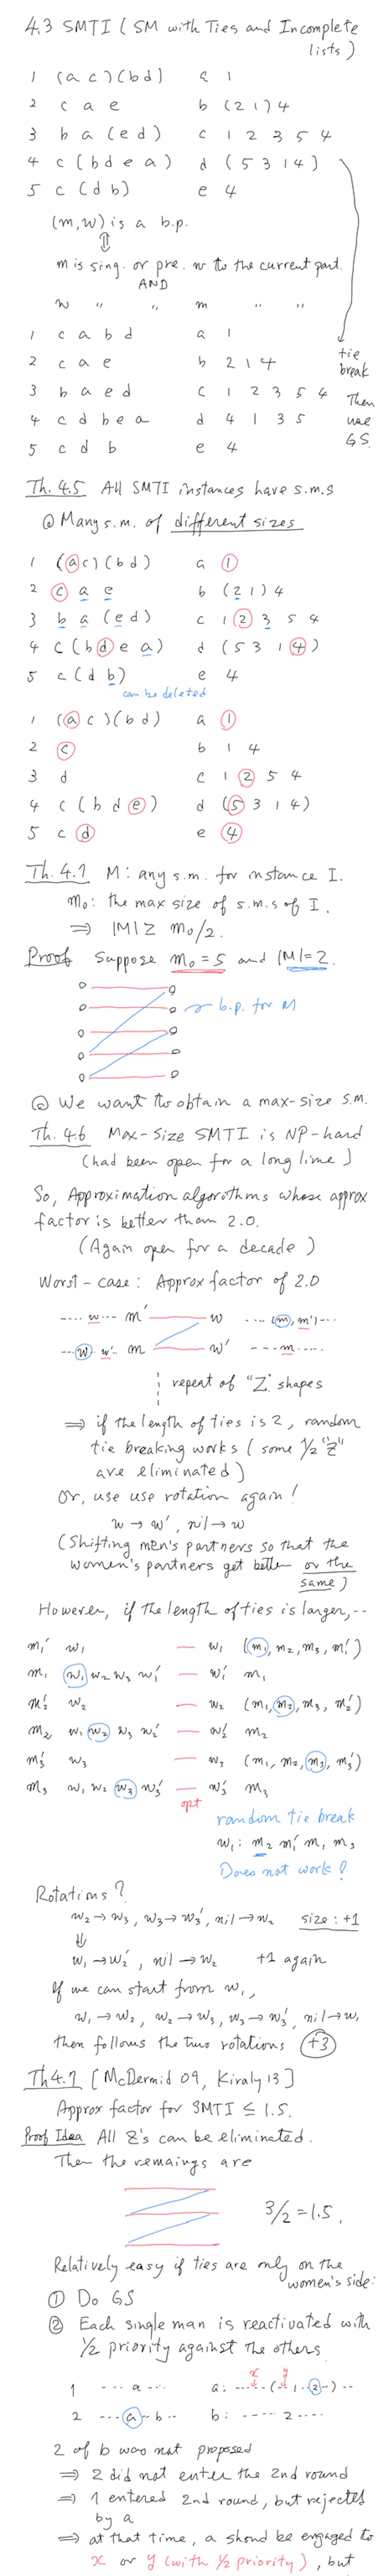 4.3 SMTI (SM with Ties and Incomplete
lists)
1 (a c)(b d) a 1
2 c a e b (2 1) 4
3 b a (e d) c 1 2 3 5 4
4 c (b d e a) d (5 3 1 4)
5 c (d b) e 4
(m,w) is a b.p.
⇕
m is sing. or pre. w to the current part.
AND
w " " m " "
1 c a b d a 1
2 c a e b 2 1 4
3 b a e d c 1 2 3 5 4
4 c d b e a d 4 1 3 5
5 c d b e 4
tie
break
Then
use
GS.
Th. 4.5 All SMTI instances have s.m.s
@ Many s.m. of different sizes
1 (a c)(b d) a 1
2 c a e b (2 1) 4
3 b a (e d) c 1 2 3 5 4
4 c (b d e a) d (5 3 1 4)
5 c (d b) e 4
can be deleted
1 (a c)(b d) a 1
2 c b 1 4
3 d c 1 2 5 4
4 c (b d e) d (5 3 1 4)
5 c d e 4
Th. 4.1 M: any s.m. for instance I.
m₀: the max size of s.m.s of I.
⇒ |M| ≥ m₀/2.
Proof Suppose m₀ = 5 and |M| = 2.
b.p. for M
@ We want to obtain a max-size s.m.
Th. 4.6 Max-Size SMTI is NP-hard
(had been open for a long time)
So, Approximation algorithms whose approx
factor is better than 2.0.
(Again open for a decade)
Worst-case: Approx factor of 2.0
---- w --- m' w ---- (m, m') ---
--- w -- w' -- m w' --- m ----
repeat of "Z" shapes
⇒ if the length of ties is 2, random
tie breaking works (some 1/2 "Z"
are eliminated)
Or, use use rotation again!
w → w', nil → w
(Shifting men's partners so that the
women's partners get better or the
same)
However, if the length of ties is larger, --
m₁' w₁ — w₁ (m₁, m₂, m₃, m₁')
m₁ w₁ w₂ w₃ w₁' — w₁' m₁
m₂' w₂ — w₂ (m₁, m₂, m₃, m₂')
m₂ w₁ w₂ w₃ w₂' — w₂' m₂
m₃' w₃ — w₃ (m₁, m₂, m₃, m₃')
m₃ w₁ w₂ w₃ w₃' — w₃' m₃
opt
random tie break
w₁: m₂ m₁' m₁ m₃
Does not work!
Rotations?
w₂ → w₃, w₃ → w₃', nil → w₂ size: +1
⇓
w₁ → w₂', nil → w₂ +1 again
If we can start from w₁,
w₁ → w₂, w₂ → w₃, w₃ → w₃', nil → w₁
then follows the two rotations +3
Th 4.7 [McDermid 09, Kiraly 13]
Approx factor for SMTI ≤ 1.5.
Proof Idea All Z's can be eliminated.
Then the remaings are
3/2 = 1.5.
Relatively easy if ties are only on the
women's side:
① Do GS
② Each single man is reactivated with
1/2 priority against the others
x y
1 --- a --- a: ----- (-- 1 -- 2 --) --
2 --- a -- b -- b: ----- 2 ----
2 of b was not proposed
⇒ 2 did not enter the 2nd round
⇒ 1 entered 2nd round, but rejected
by a
⇒ at that time, a shoud be engaged to
x or y (with 1/2 priority), but